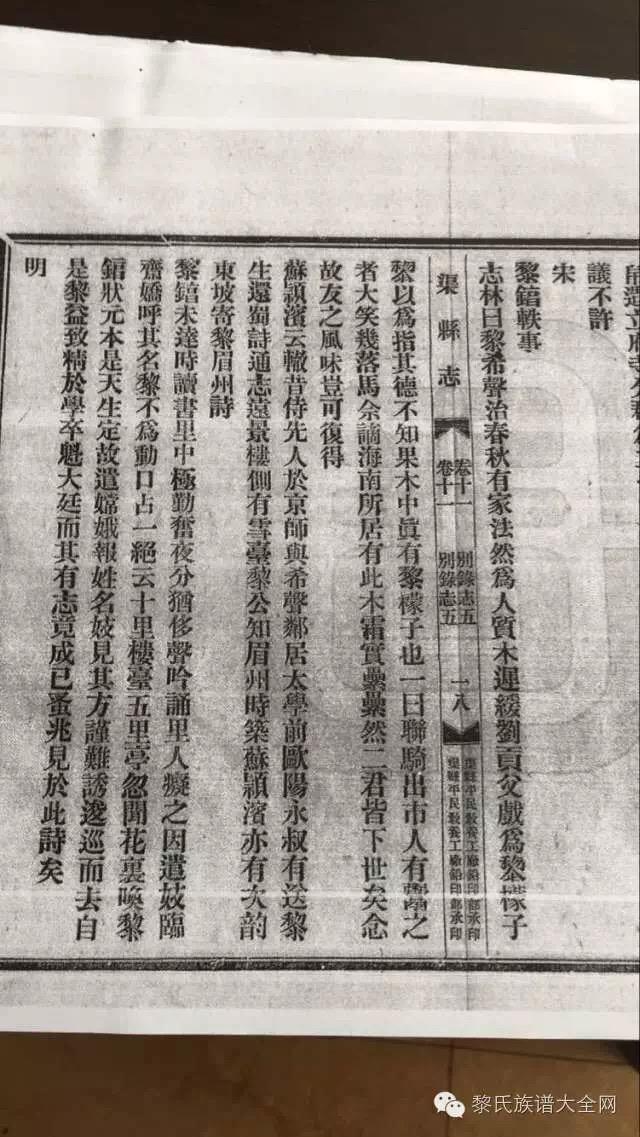 議不許
宋
黎錞軼事
志林曰黎希聲治春秋有家法然爲人質木遲緩劉貢父戲爲黎檬子
渠縣志
卷十一
別錄志五
一八
渠縣平民敎養工廠鉛印部承印
卷十一
別錄志五
渠縣平民敎養工廠鉛印部承印
黎以爲指其德不知果木中眞有黎檬子也一日聯騎出市人有鬻之
者大笑幾落馬余謫海南所居有此木霜實纍纍然二君皆下世矣念
故友之風味豈可復得
蘇頴濱云轍昔侍先人於京師與希聲鄰居太學前歐陽永叔有送黎
生還蜀詩通志遠景樓側有雪臺黎公知眉州時築蘇頴濱亦有次韵
東坡寄黎眉州詩
黎錞未達時讀書里中極勤奮夜分猶侈聲吟誦里人癡之因遣妓臨
齋嬌呼其名黎不爲動口占一絕云十里樓臺五里亭忽聞花裏喚黎
錞狀元本是天生定故遣嫦娥報姓名妓見其方謹難誘逡巡而去自
是黎益致精於學卒魁大廷而其有志竟成已蚤兆見於此詩矣
明
黎氏族谱大全网